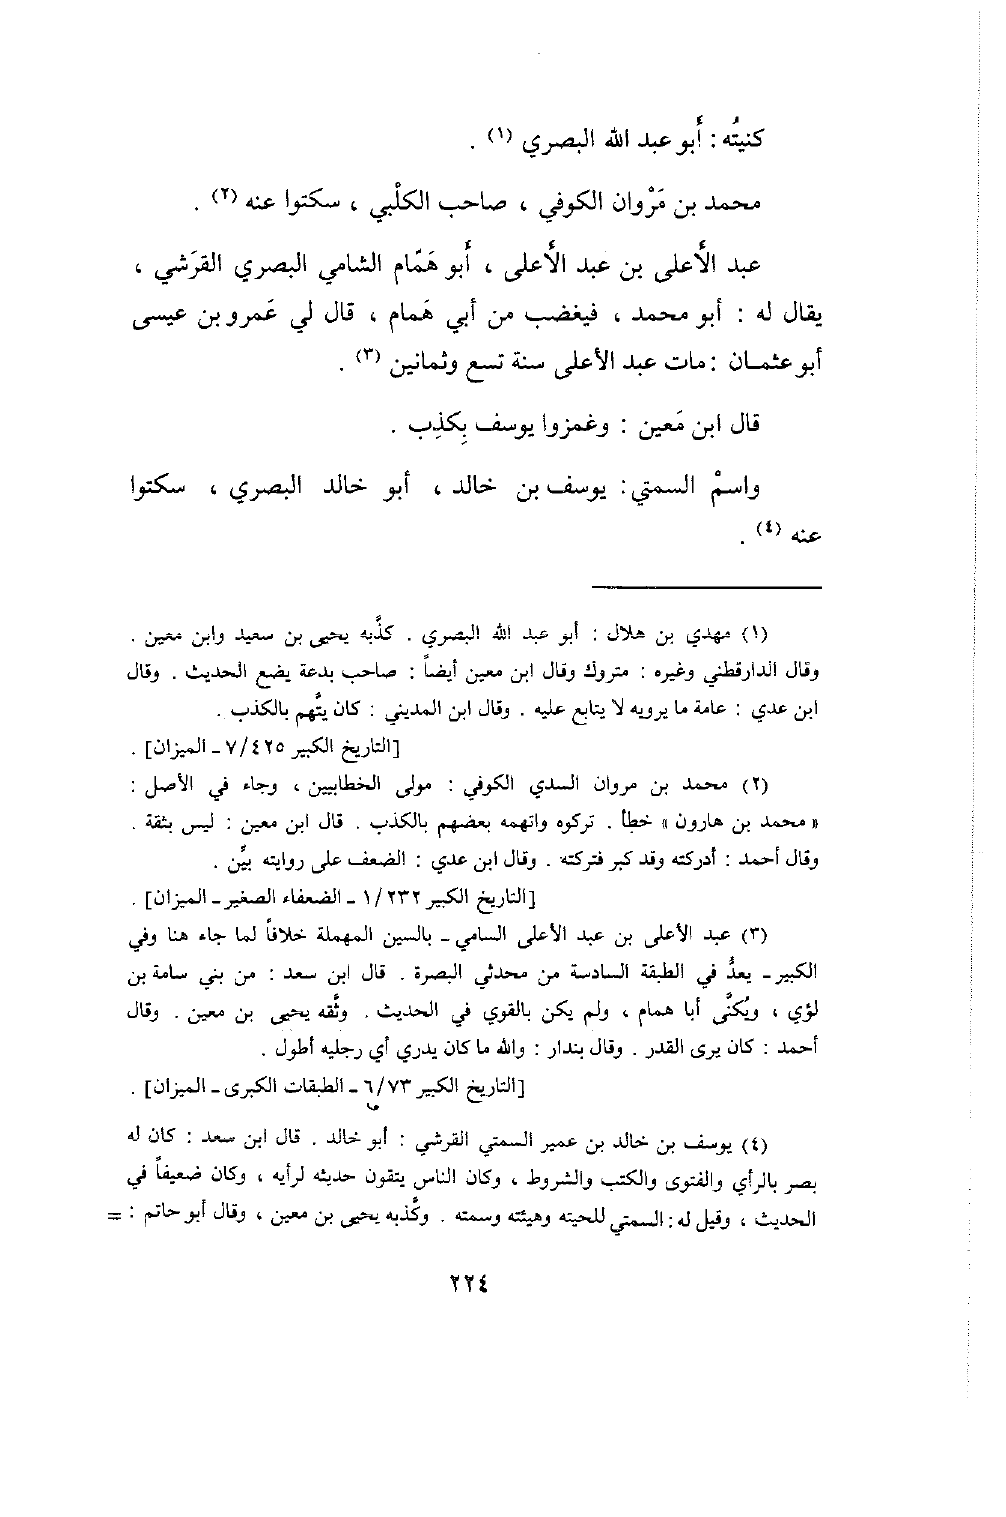 كنيتُه : أَبو عبد الله البصري (١) .
محمد بن مَرْوان الكوفي ، صاحب الكلْبي ، سكتوا عنه (٢) .
عبد الأَعلى بن عبد الأَعلى ، أَبو هَمّام الشامي البصري القرَشي ،
يقال له : أبو محمد ، فيغضب من أبي هَمام ، قال لي عَمرو بن عيسى
أبو عثمان : مات عبد الأعلى سنة تسع وثمانين (٣) .
قال ابن مَعين : وغمزوا يوسف بِكذِب .
واسمْ السمتي : يوسف بن خالد ، أبو خالد البصري ، سكتوا
عنه (٤) .
(١) مهدي بن هلال : أبو عبد الله البصري . كذَّبه يحيى بن سعيد وابن معين .
وقال الدارقطني وغيره : متروك وقال ابن معين أيضاً : صاحب بدعة يضع الحديث . وقال
ابن عدي : عامة ما يرويه لا يتابع عليه . وقال ابن المديني : كان يتُّهم بالكذب .
[التاريخ الكبير ٧/٤٢٥ ـ الميزان] .
(٢) محمد بن مروان السدي الكوفي : مولى الخطابيين ، وجاء في الأصل :
« محمد بن هارون » خطأ . تركوه واتهمه بعضهم بالكذب . قال ابن معين : ليس بثقة .
وقال أحمد : أدركته وقد كبر فتركته . وقال ابن عدي : الضعف على روايته بيِّن .
[التاريخ الكبير ١/٢٣٢ ـ الضعفاء الصغير ـ الميزان] .
(٣) عبد الأعلى بن عبد الأعلى السامي ـ بالسين المهملة خلافاً لما جاء هنا وفي
الكبير ـ يعدُّ في الطبقة السادسة من محدثي البصرة . قال ابن سعد : من بني سامة بن
لؤي ، ويُكنَّى أبا همام ، ولم يكن بالقوي في الحديث . وثَّقه يحيى بن معين . وقال
أحمد : كان يرى القدر . وقال بندار : والله ما كان يدري أي رجليه أطول .
[التاريخ الكبير ٦/٧٣ ـ الطبقات الكبرى ـ الميزان] .
(٤) يوسف بن خالد بن عمير السمتي القرشي : أبو خالد . قال ابن سعد : كان له
بصر بالرأي والفتوى والكتب والشروط ، وكان الناس يتقون حديثه لرأيه ، وكان ضعيفاً في
الحديث ، وقيل له : السمتي للحيته وهيئته وسمته . وكذَّبه يحيى بن معين ، وقال أبو حاتم : =
٢٢٤